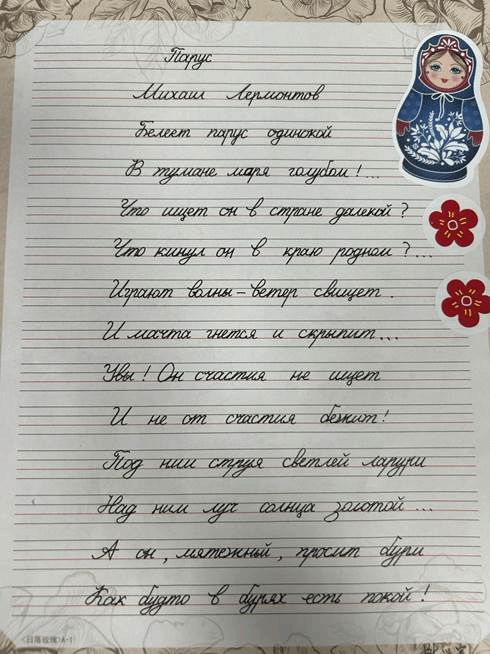 Парус
Михаил Лермонтов
Белеет парус одинокой
В тумане моря голубом!...
Что ищет он в стране далекой?
Что кинул он в краю родном?...
Играют волны – ветер свищет.
И мачта гнется и скрыпит...
Увы! Он счастия не ищет
И не от счастия бежит!
Под ним струя светлей лазури
Над ним луч солнца золотой...
А он, мятежный, просит бури
Как будто в бурях есть покой!
(日落玫瑰)A-1